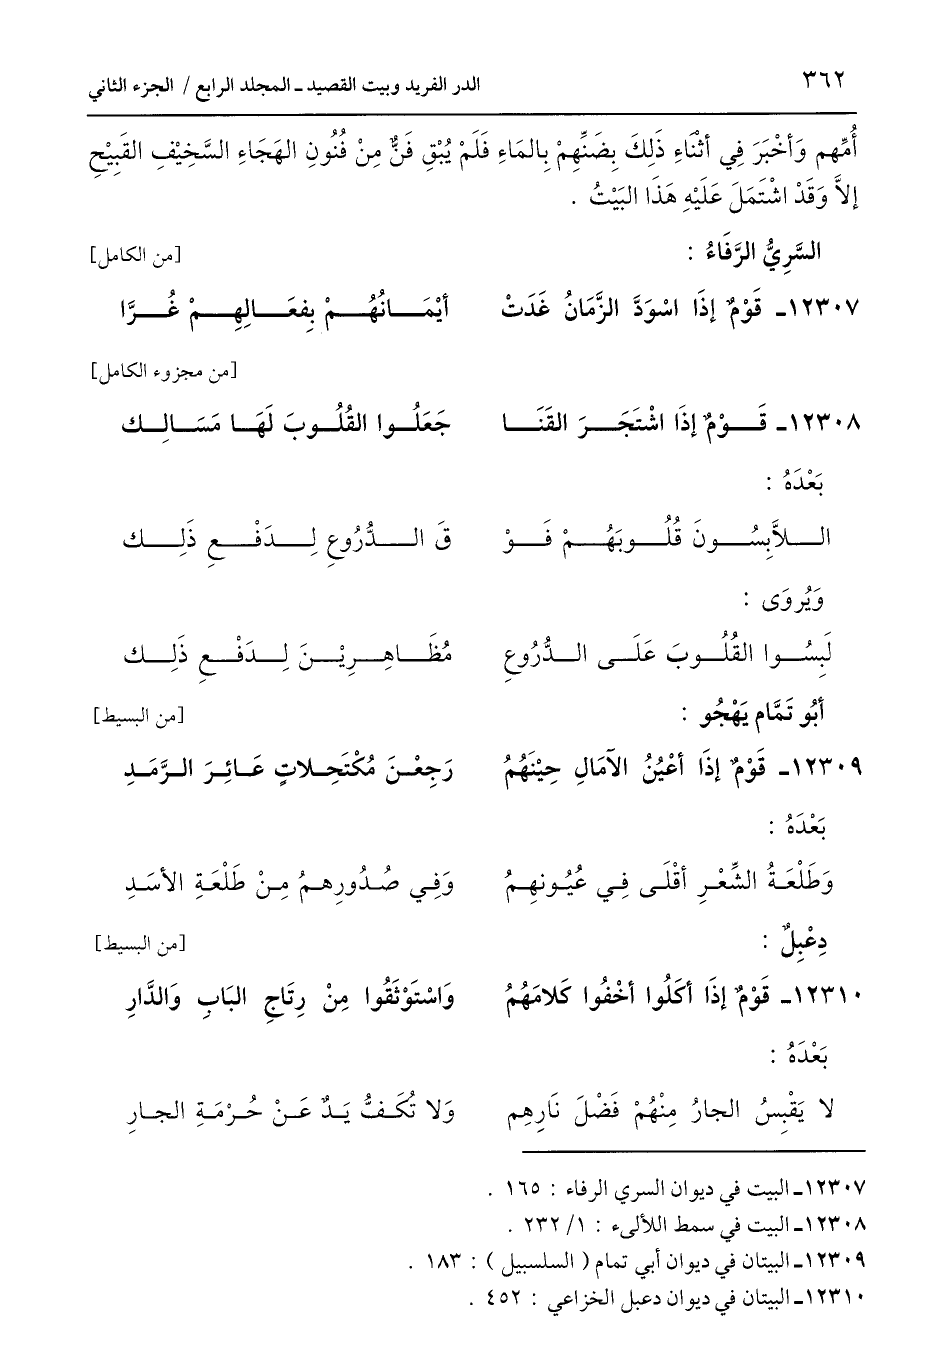 ٣٦٢ الدر الفريد وبيت القصيد ـ المجلد الرابع / الجزء الثاني
أُمِّهِم وَأخْبَرَ فِي أثْنَاءِ ذَلِكَ بِضَنِّهِمْ بِالمَاءِ فَلَمْ يُبْقِ فَنٌّ مِنْ فُنُونِ الهَجَاءِ السَّخِيْفِ القَبِيْحِ
إلاَّ وَقَدْ اشْتَمَلَ عَلَيْهِ هَذَا البَيْتُ .
السَّرِيُّ الرَّفَاءُ : [من الكامل]
١٢٣٠٧ـ قَوْمٌ إذَا اسْوَدَّ الزَّمَانُ غَدَتْ أيْمَـانُهُـمْ بِفعَـالِهِـمْ غُـرَّا
[من مجزوء الكامل]
١٢٣٠٨ـ قَـوْمٌ إذَا اشْتَجَـرَ القَنَـا جَعَلُـوا القُلُـوبَ لَهَـا مَسَـالِـك
بَعْدَهُ :
الـلاَّبِسُـونَ قُلُـوبَهُـمْ فَـوْ قَ الـدُّرُوعِ لِـدَفْـعِ ذَلِـك
وَيُروَى :
لَبِسُـوا القُلُـوبَ عَلَـى الـدُّرُوعِ مُظَـاهِـرِيْـنَ لِـدَفْـعِ ذَلِـك
أبُو تَمَّام يَهْجُو : [من البسيط]
١٢٣٠٩ـ قَوْمٌ إذَا أعْيُنُ الآمَالِ حِيْنَهُمُ رَجِعْـنَ مُكْتَحِـلاتٍ عَـائِـرَ الـرَّمَـدِ
بَعْدَهُ :
وَطَلْعَةُ الشِّعْـرِ أقْلَى فِي عُيُـونهِمُ وَفِي صُـدُورِهـمُ مِـنْ طَلْعَةِ الأسَـدِ
دِعْبِلٌ : [من البسيط]
١٢٣١٠ـ قَوْمٌ إذَا أكَلُوا أخْفُوا كَلامَهُمُ وَاسْتَوْثَقُوا مِنْ رِتَاجِ البَابِ وَالدَّارِ
بَعْدَهُ :
لا يَقْبِسُ الجارُ مِنْهُمْ فَضْلَ نَارِهِم وَلا تُكَـفُّ يَـدٌ عَـنْ حُـرْمَـةِ الجـارِ
١٢٣٠٧ـ البيت في ديوان السري الرفاء : ١٦٥ .
١٢٣٠٨ـ البيت في سمط اللألىء : ١/ ٢٣٢ .
١٢٣٠٩ـ البيتان في ديوان أبي تمام ( السلسبيل ) : ١٨٣ .
١٢٣١٠ـ البيتان في ديوان دعبل الخزاعي : ٤٥٢ .